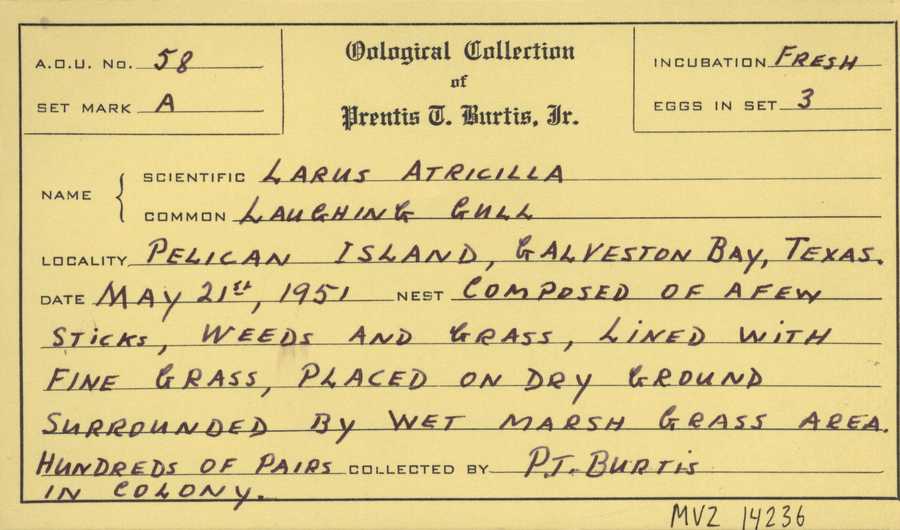 A.O.U. No. 58
SET MARK A
Oological Collection
of
Prentis T. Burtis, Jr.
INCUBATION FRESH
EGGS IN SET 3
NAME
SCIENTIFIC LARUS ATRICILLA
COMMON LAUGHING GULL
LOCALITY PELICAN ISLAND, GALVESTON BAY, TEXAS.
DATE MAY 21st, 1951 NEST COMPOSED OF A FEW
STICKS, WEEDS AND GRASS, LINED WITH
FINE GRASS, PLACED ON DRY GROUND
SURROUNDED BY WET MARSH GRASS AREA.
HUNDREDS OF PAIRS COLLECTED BY P.T. BURTIS
IN COLONY.
MVZ 14236